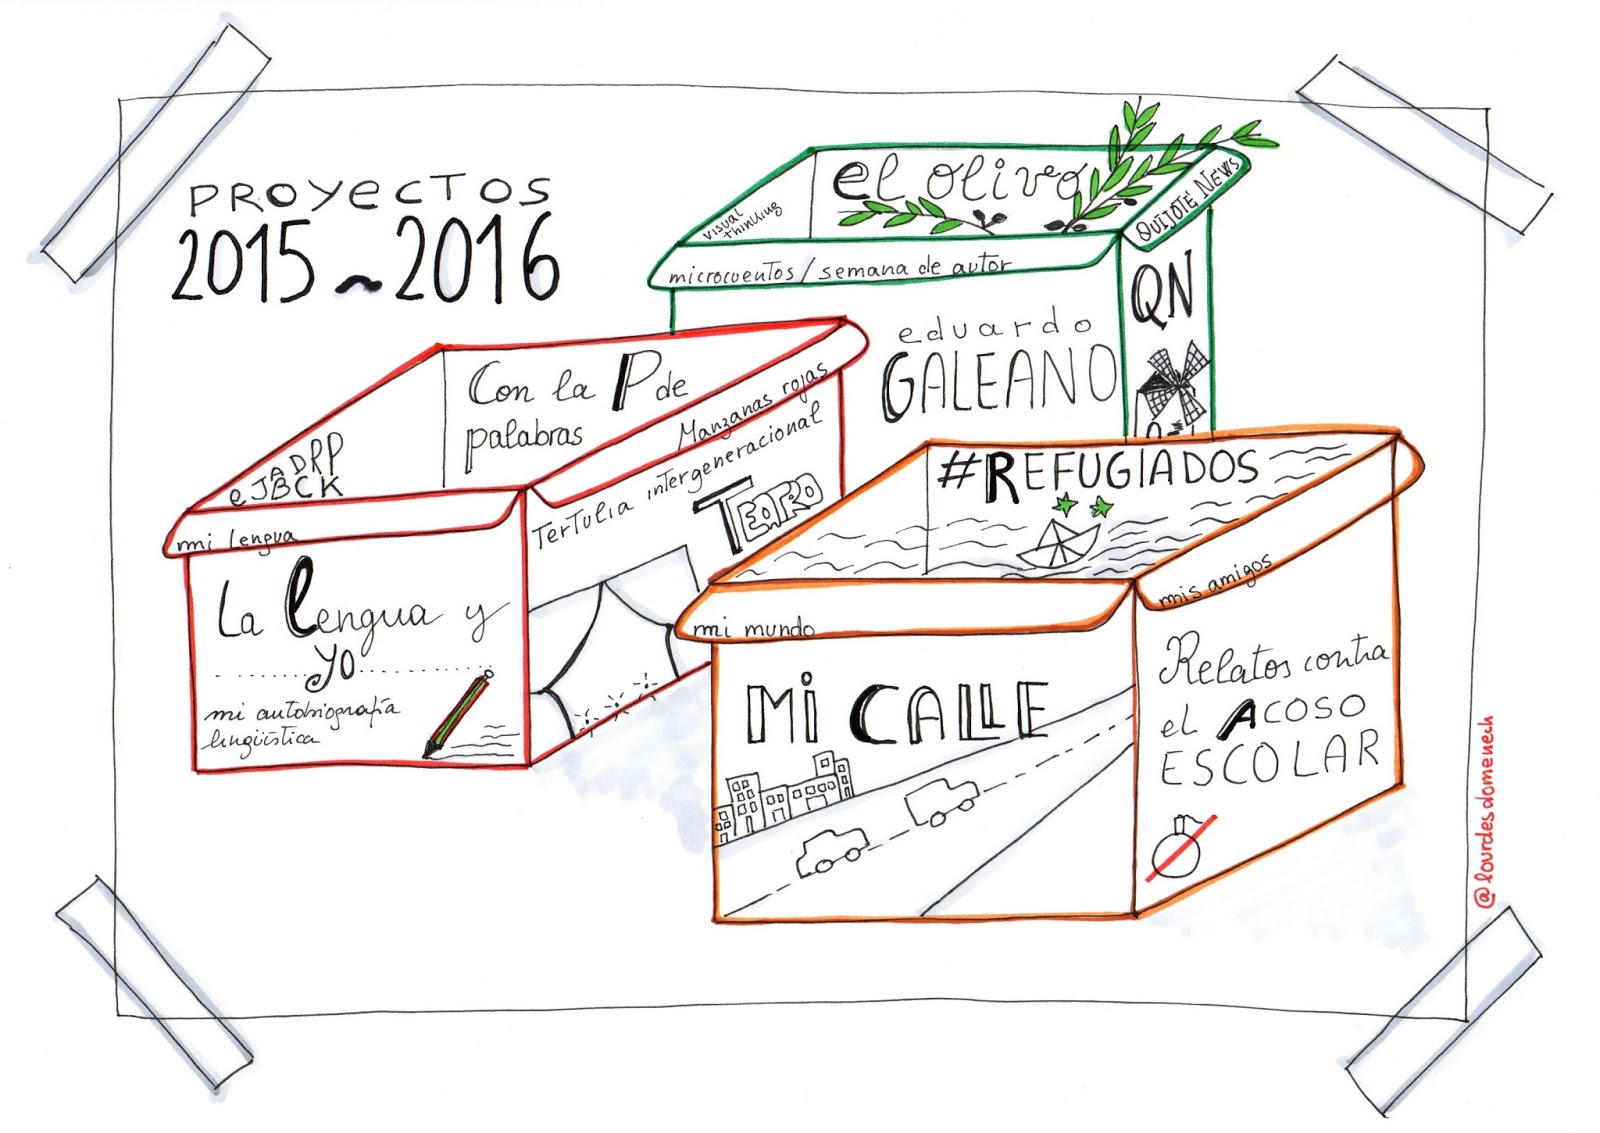 PROYECTOS
2015~2016
el olivo
visual
thinking
QUIJOTE NEWS
microcuentos / semana de autor
QN
eduardo
GALEANO
Con la P de
palabras
Manzanas rojas
ADRP
eJBCK
mi lengua
Tertulia intergeneracional
TEATRO
La Lengua y
yo
mi autobiografía
lingüística
#REFUGIADOS
mi mundo
mis amigos
MI CALLE
Relatos contra
el ACOSO
ESCOLAR
@lourdesdomenech